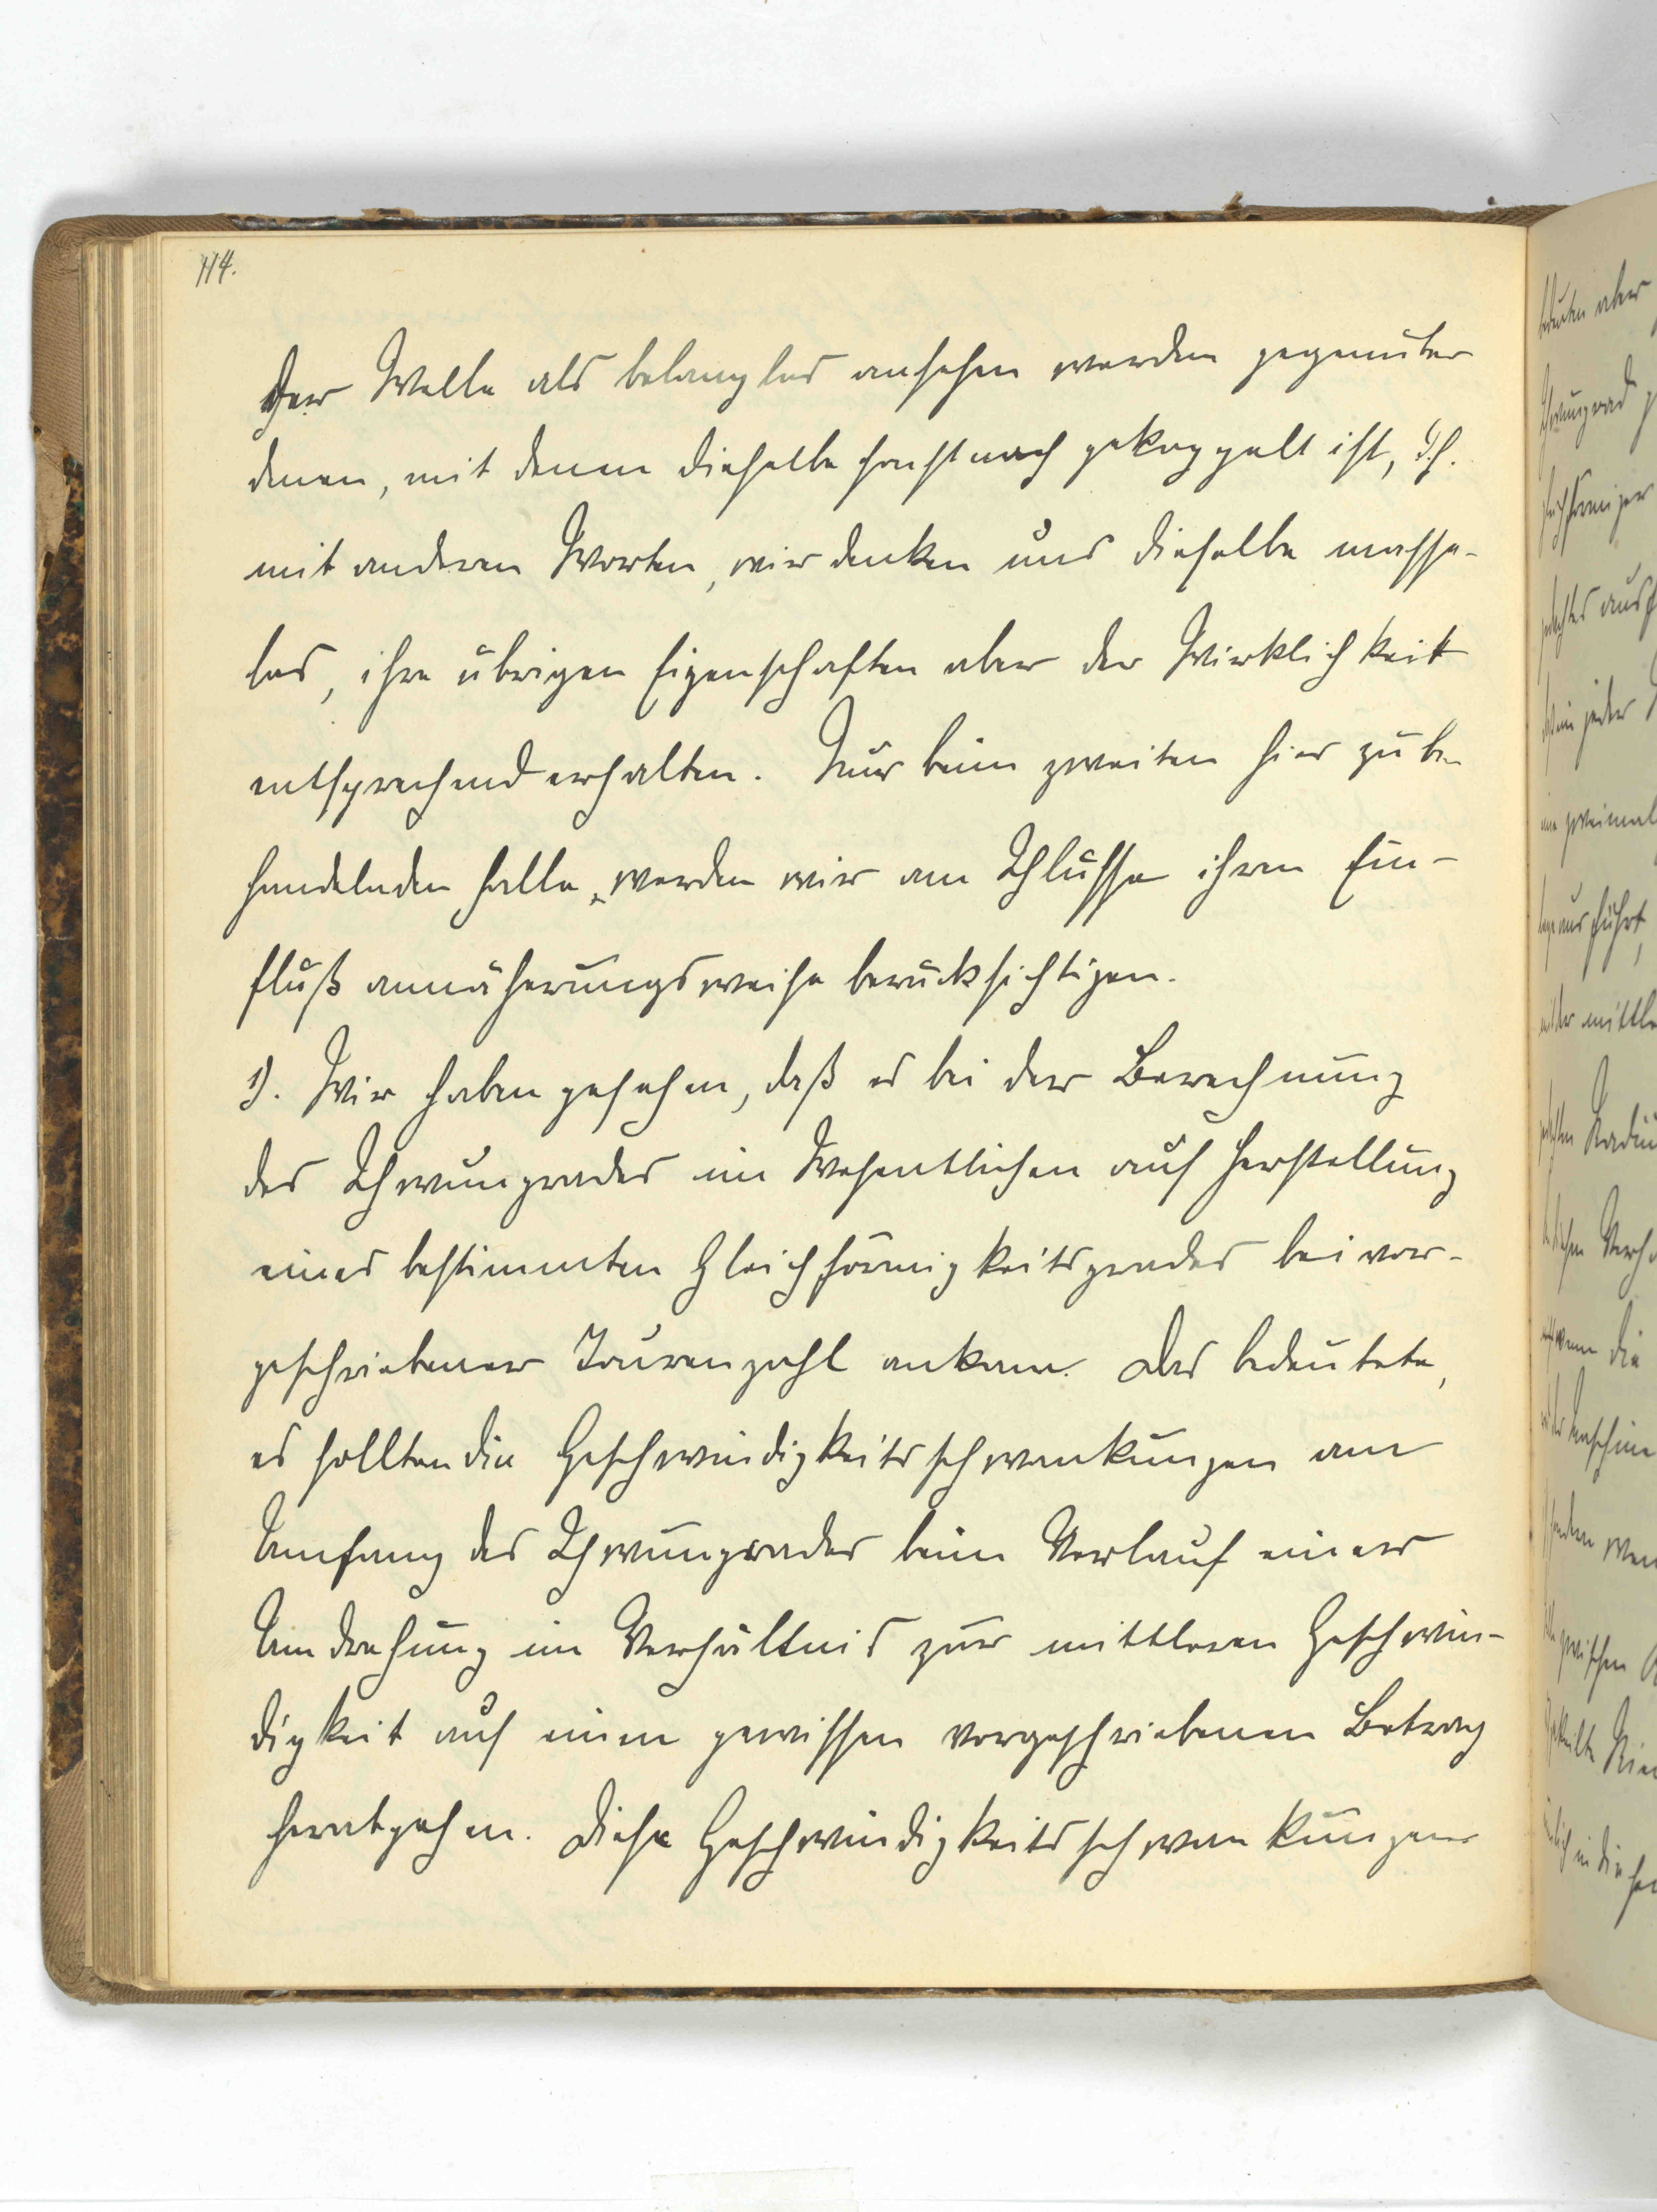 114.
der Welle als belanglos ansehen werden gegenüber
denen, mit denen dieselbe sonst noch gekoppelt ist, d.h.
mit anderen Worten, wir denken uns dieselbe masse-
los, ihre übrigen Eigenschaften aber der Wirklichkeit
entsprechend erhalten. Nur beim zweiten hier zu be-
handelnden Falle, werden wir am Schlusse ihren Ein-
fluß annäherungsweise berücksichtigen.
1). Wir haben gesehen, daß es bei der Berechnung
des Schwungrades im Wesentlichen auf Herstellung
eines bestimmten Gleichförmigkeitsgrades bei vor-
geschriebener Tourenzahl ankam. Das bedeutete,
es sollten die Geschwindigkeitsschwankungen am
Umfang des Schwungrades beim Verlauf einer
Umdrehung im Verhältnis zur mittleren Geschwin-
digkeit auf einen gewissen vorgeschriebenen Betrag
herabgehen. Diese Geschwindigkeitsschwankungen
aber
jeder
zweimal
ausführt,
der mittle
wenn die
zwischen